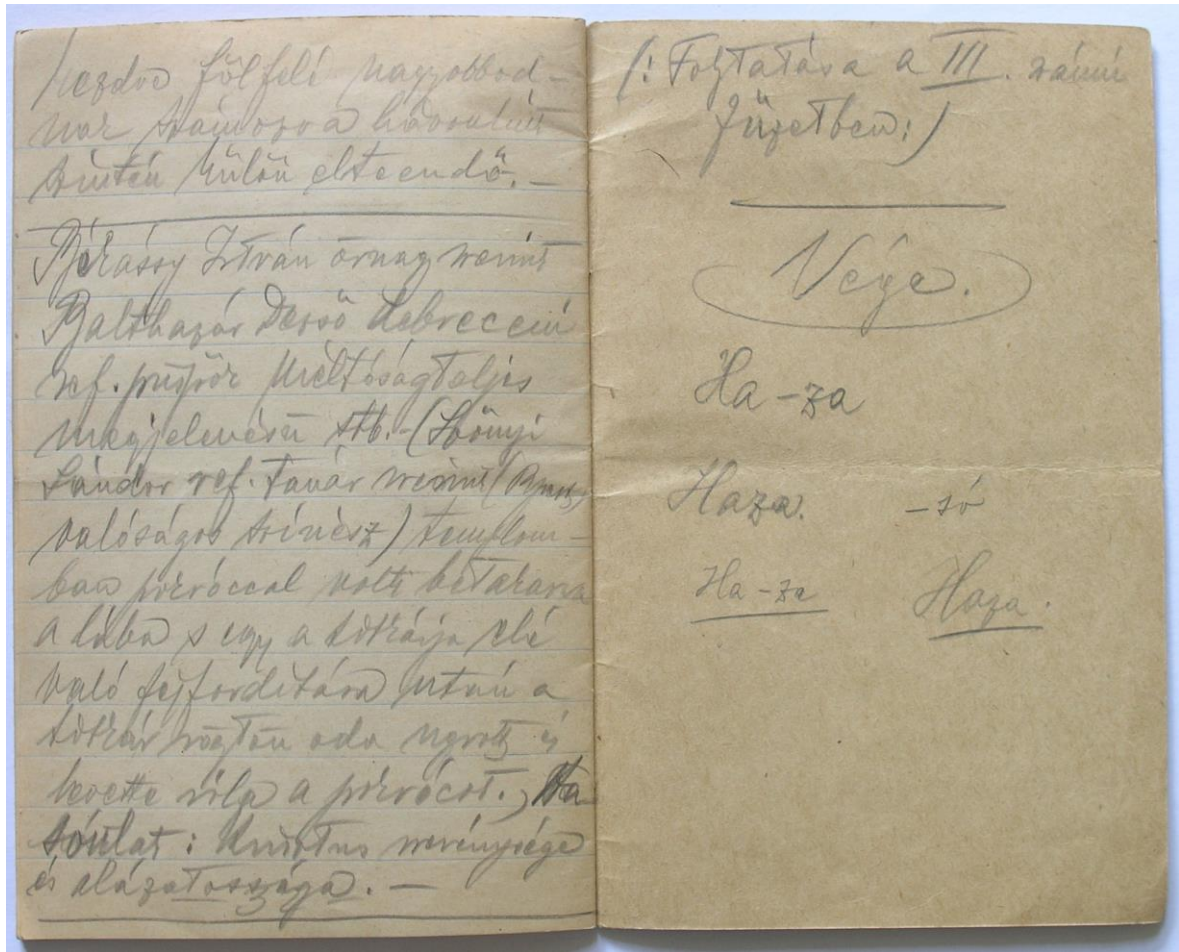 kezdve fölfelé nagyobbod-
va számozva
szintén külön elteendő. –
István őrnagy szerint
Balthazár Dezső debreceni
ref. püspök méltóságteljes
megjelenésű stb. –
Sándor ref. tanár szerint
valóságos színész) templom-
ban pokróccal volt betakarva
a lába s egy a titkárja elé
való fejfordítása után a
titkár rögtön oda ugrott és
levette róla a pokrócot. Ha-
sonlat: Krisztus szerénysége
és alázatossága. –
(: Folytatása a III. számú
füzetben:)
Vége.
Ha-za
Haza. -só
Ha-za Haza.